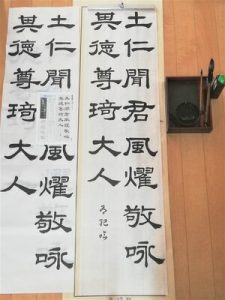 士仁聞君風燿敬咏
其徳尊琦大人
士仁聞風燿敬咏
其徳尊琦大人